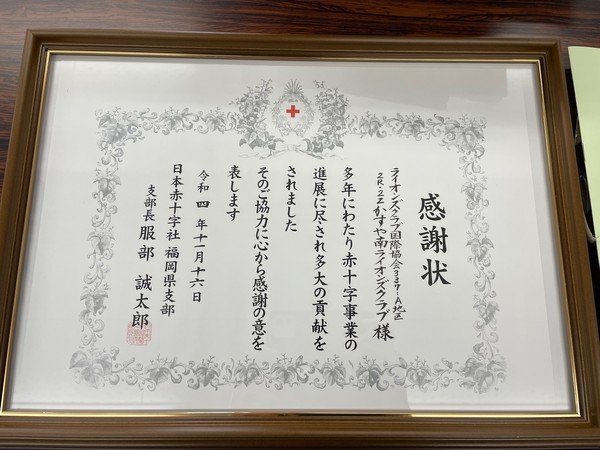 感謝状
ライオンズクラブ国際協会337-A地区
2R・2Zかすや南ライオンズクラブ 様
多年にわたり赤十字事業の
進展に尽され多大の貢献を
されました
そのご協力に心から感謝の意を
表します
令和四年十一月十六日
日本赤十字社 福岡県支部
支部長 服部 誠太郎